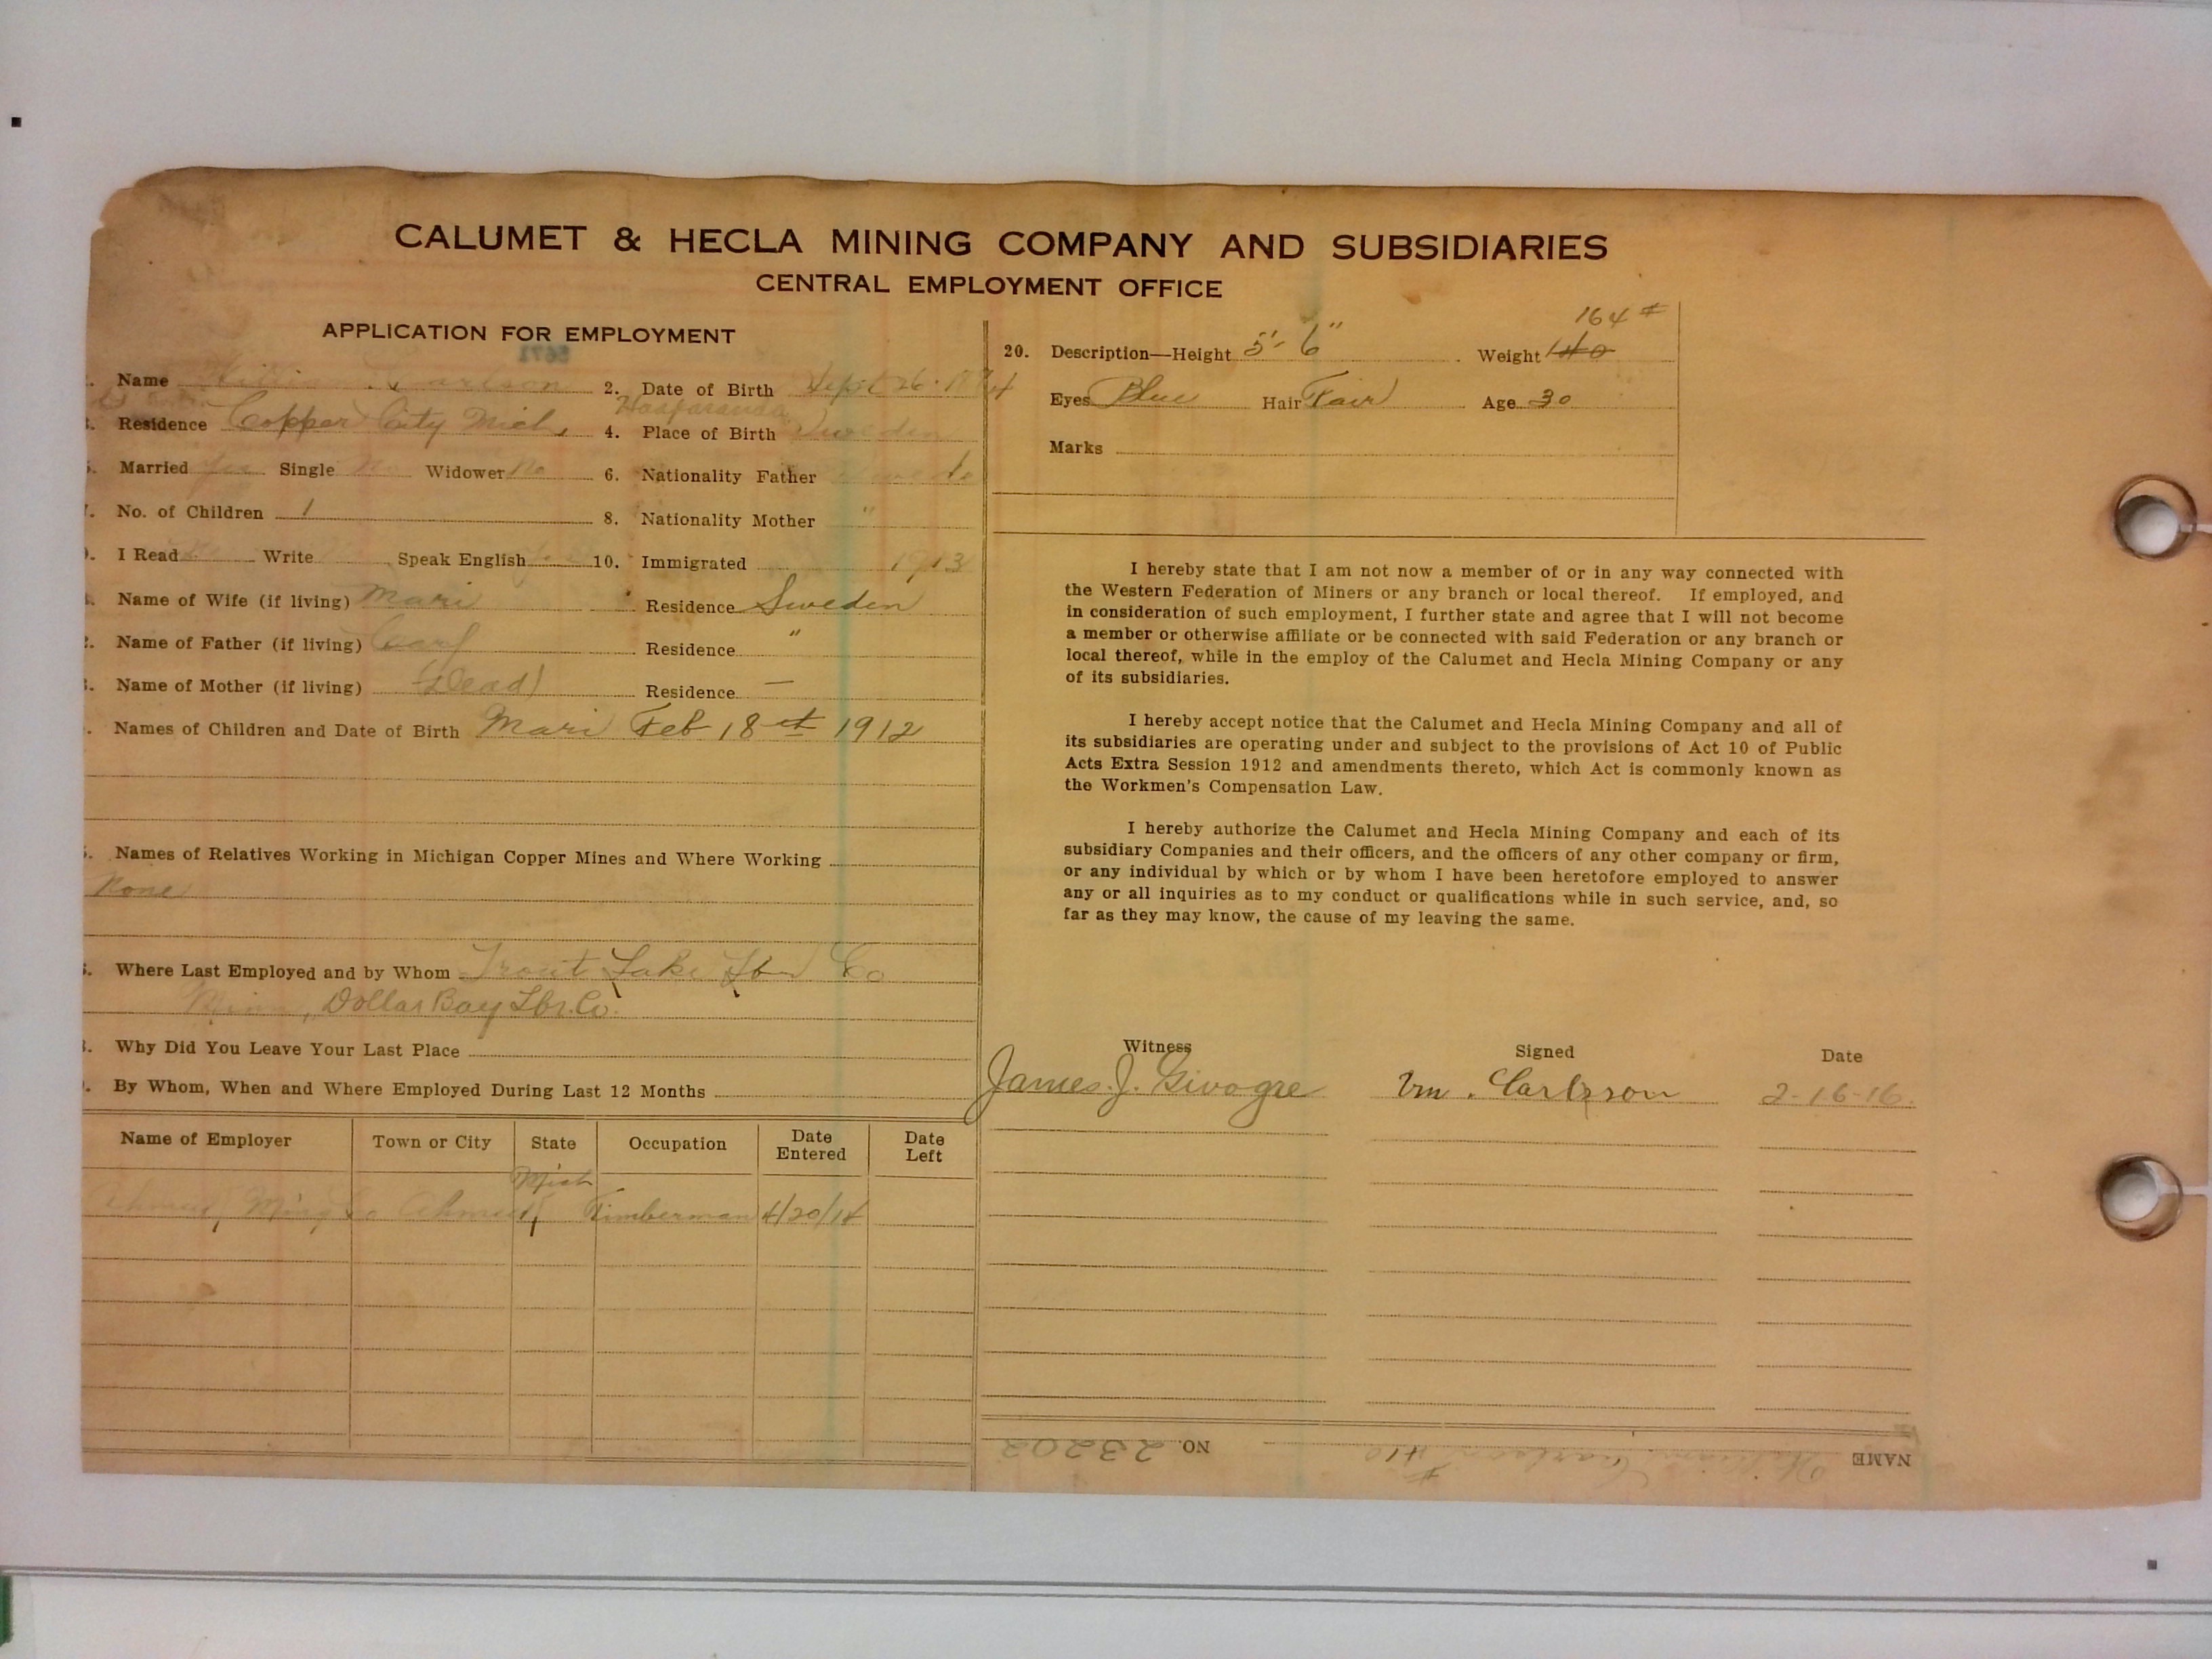 CALUMET & HECLA MINING COMPANY AND SUBSIDIARIES
CENTRAL EMPLOYMENT OFFICE
APPLICATION FOR EMPLOYMENT
Name William Carlson 2. Date of Birth Sept 26
Residence Copper City Mich. 4. Place of Birth Haaparanda Sweden
Married Yes Single No Widower No 6. Nationality Father Swede
7. No. of Children 1 8. Nationality Mother "
I Read Write Speak English 10. Immigrated 1913
Name of Wife (if living) Mari Residence Sweden
Name of Father (if living) Residence "
Name of Mother (if living) (Dead) Residence —
Names of Children and Date of Birth Mari Feb 18 1912
Names of Relatives Working in Michigan Copper Mines and Where Working
None
Where Last Employed and by Whom Trout Lake Lbr Co
Minn, Dollar Bay Lbr. Co.
Why Did You Leave Your Last Place
By Whom, When and Where Employed During Last 12 Months
Name of Employer Town or City State Occupation Date Entered Date Left
Mich
Ahmeek Ming Co Ahmeek Timberman 4/20/14
164 #
20. Description—Height 5'- 6" Weight 140
Eyes Blue Hair Fair Age 30
Marks
I hereby state that I am not now a member of or in any way connected with
the Western Federation of Miners or any branch or local thereof. If employed, and
in consideration of such employment, I further state and agree that I will not become
a member or otherwise affiliate or be connected with said Federation or any branch or
local thereof, while in the employ of the Calumet and Hecla Mining Company or any
of its subsidiaries.
I hereby accept notice that the Calumet and Hecla Mining Company and all of
its subsidiaries are operating under and subject to the provisions of Act 10 of Public
Acts Extra Session 1912 and amendments thereto, which Act is commonly known as
the Workmen's Compensation Law.
I hereby authorize the Calumet and Hecla Mining Company and each of its
subsidiary Companies and their officers, and the officers of any other company or firm,
or any individual by which or by whom I have been heretofore employed to answer
any or all inquiries as to my conduct or qualifications while in such service, and, so
far as they may know, the cause of my leaving the same.
Witness Signed Date
James. J. Wm. Carlson 2-16-16.
NAME William Carlson #10 NO. 23202